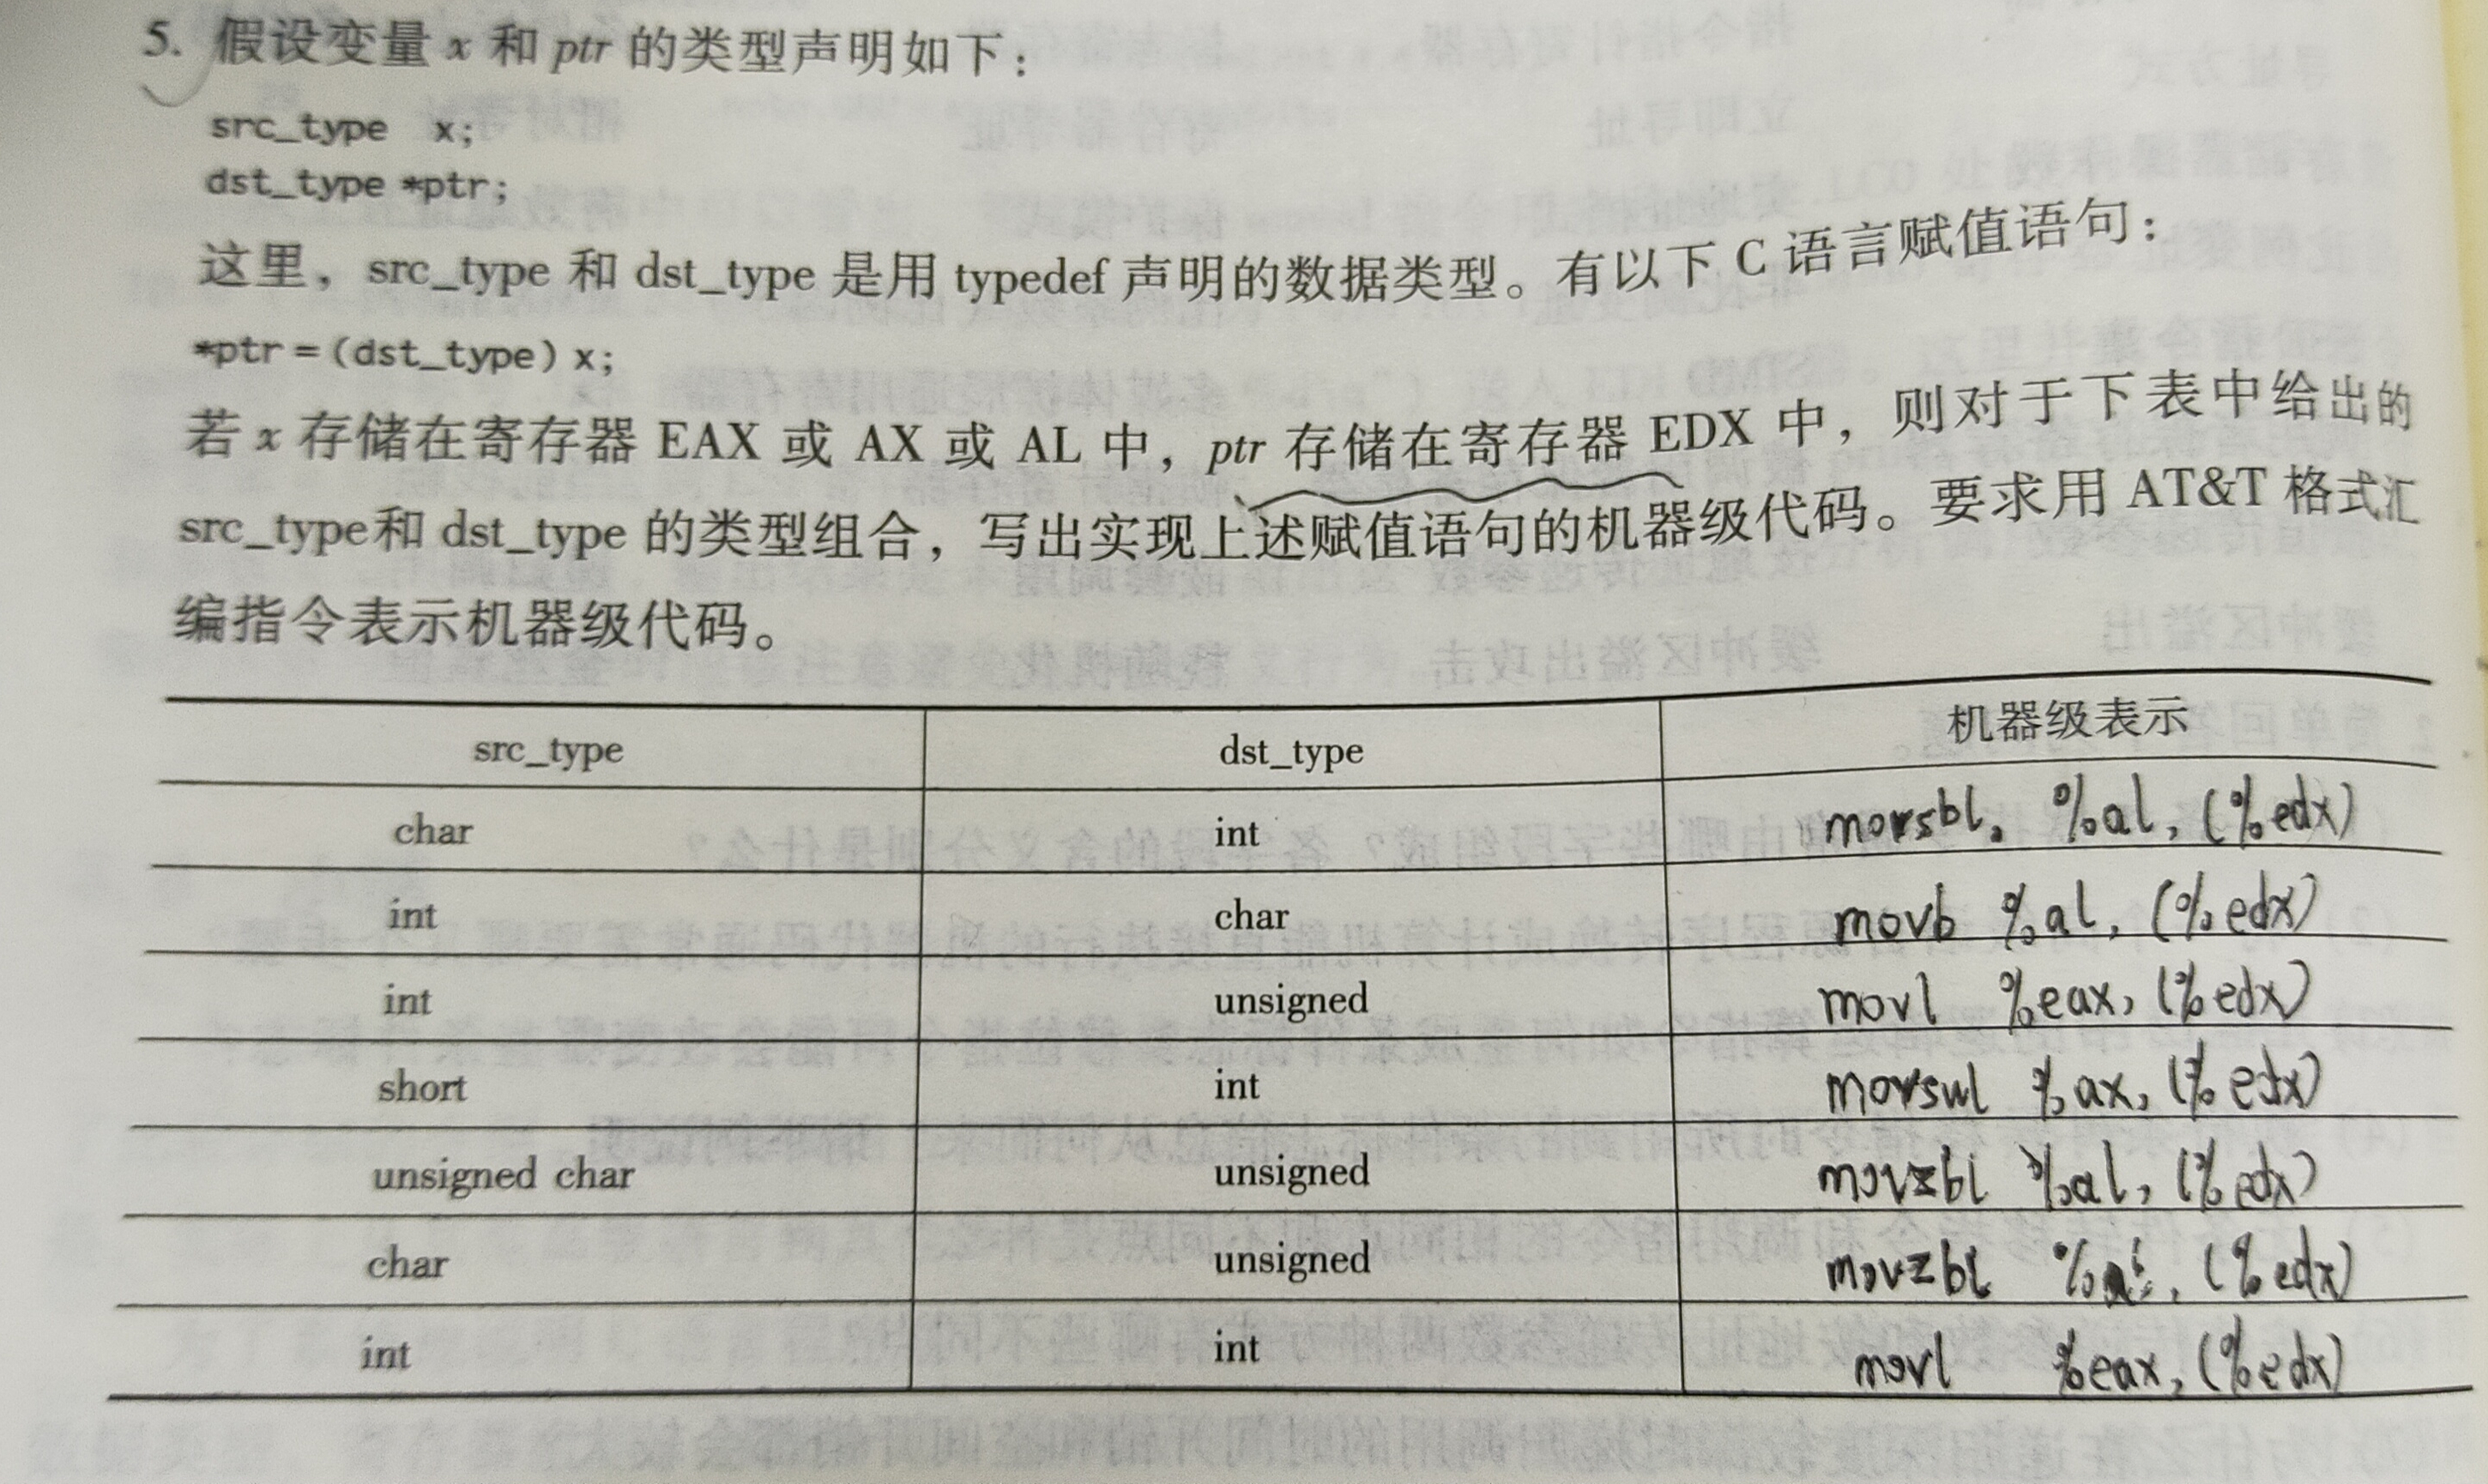 5. 假设变量 x 和 ptr 的类型声明如下：
src_type x;
dst_type *ptr;
这里，src_type 和 dst_type 是用 typedef 声明的数据类型。有以下 C 语言赋值语句：
*ptr = (dst_type) x;
若 x 存储在寄存器 EAX 或 AX 或 AL 中，ptr 存储在寄存器 EDX 中，则对于下表中给出的
src_type和 dst_type 的类型组合，写出实现上述赋值语句的机器级代码。要求用 AT&T 格式汇
编指令表示机器级代码。
src_type dst_type 机器级表示
char int movsbl, %al, (%edx)
int char movb %al, (%edx)
int unsigned movl %eax, (%edx)
short int movswl %ax, (%edx)
unsigned char unsigned movzbl %al, (%edx)
char unsigned movzbl (%edx)
int int movl %eax, (%edx)